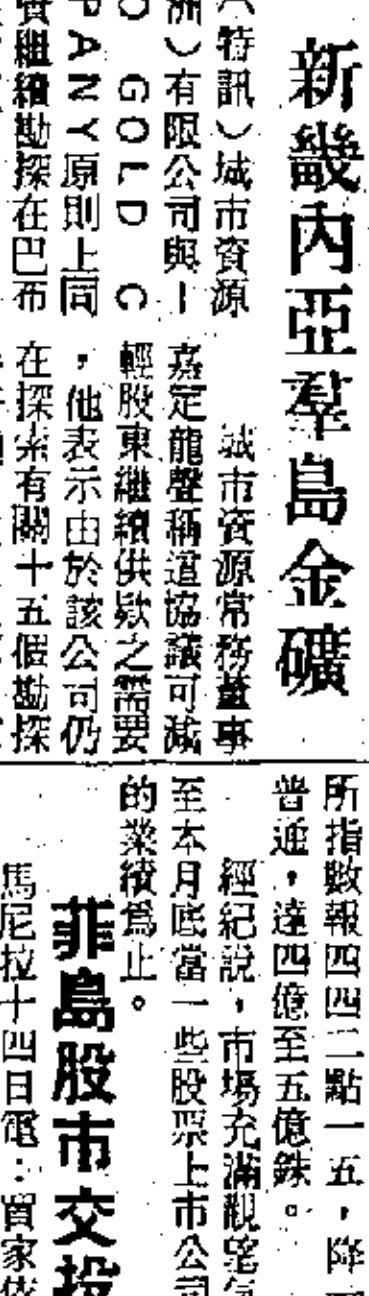 新畿內亞羣島金礦
（特訊）城市資源
洲）有限公司與I
D GOLD C
PANY原則上同
實繼續勘探在巴布
城市資源常務董事
嘉定龍聲稱這協議可減
輕股東繼續供欵之需要
，他表示由於該公司仍
在探索有關十五個勘探
所指數報四四二點一五，降
普通，達四億至五億銖。
經紀說，市場充滿觀望氣
至本月底當一些股票上市公司
的業績爲止。
菲島股市交投
馬尼拉十四日電：買家依